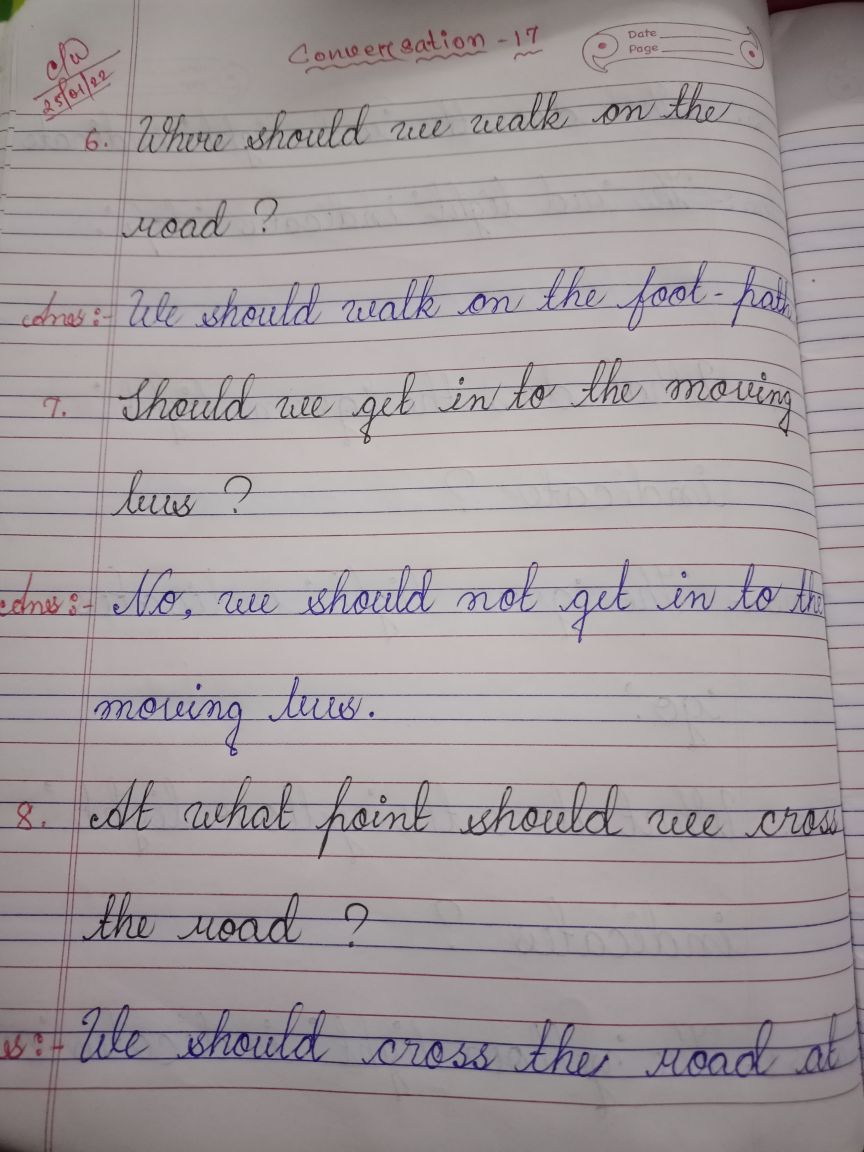 C/W
25/01/22
Conversation - 17
Date
Page
6. Where should we walk on the
road ?
Ans :- We should walk on the foot - path
7. Should we get in to the moving
bus ?
Ans :- No, we should not get in to the
moving bus.
8. At what point should we cross
the road ?
s :- We should cross the road at